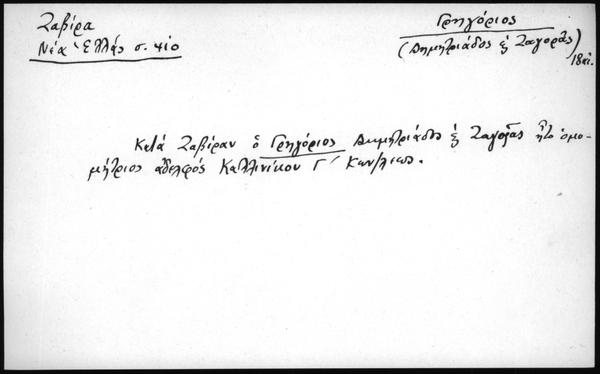 Ζαβίρα
Νέα Ἑλλάς σ. 410
Γρηγόριος
(Δημητριάδος & Ζαγορᾶς)
18 αἰ.
Κατά Ζαβίραν ὁ Γρηγόριος Δημητριάδος & Ζαγορᾶς ἦτο ὁμο-
μήτριος ἀδελφός Καλλινίκου Γ´ Κων/λεως.